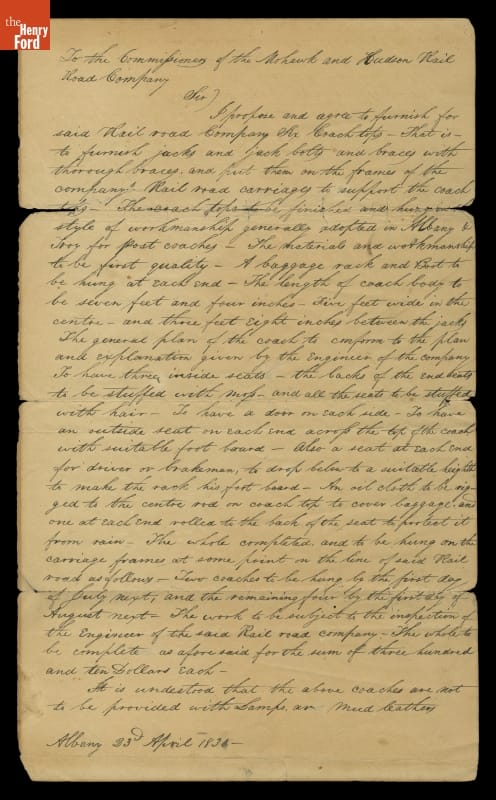 the
Henry
Ford
To the Commissioners of the Mohawk and Hudson Rail
Road Company
Sir)
I propose and agree to furnish for
said Rail road Company Six Coach tops - That is -
to furnish jacks and jack bolts and braces with
thorough braces, and put them on the frames of the
company's Rail road carriages to support the coach
tops - The coach tops to be finished and hung in
style of workmanship generally adopted in Albany &
Troy for Post coaches - The materials and workmanship
to be first quality - A baggage rack and Boot to
be hung at each end - The length of coach body to
be seven feet and four inches - Five feet wide in the
centre - and three feet Eight inches between the jacks
The general plan of the coach to conform to the plan
and explanation given by the Engineer of the company
To have three inside seats - the backs of the end seats
to be stuffed with moss - and all the seats to be stuffed
with hair - To have a door on each side - To have
an outside seat on each end across the top of the coach
with suitable foot board - Also a seat at each End
for driver or brakeman, to drop below to a suitable height
to make the rack his foot board - An oil cloth to be rig-
ged to the centre rod on coach top to cover baggage, and
one at each End rolled to the back of the seat to protect it
from rain - The whole completed and to be hung on the
carriage frames at some point on the line of said Rail
road as follows - Two coaches to be hung by the first day
of July next, and the remaining four by the first day of
August next - The work to be subject to the inspection of
the Engineer of the said Rail road company - The whole to
be complete as afore said for the sum of three hundred
and ten Dollars Each -
It is understood that the above coaches are not
to be provided with Lamps, or mud leathers
Albany 23d April 183